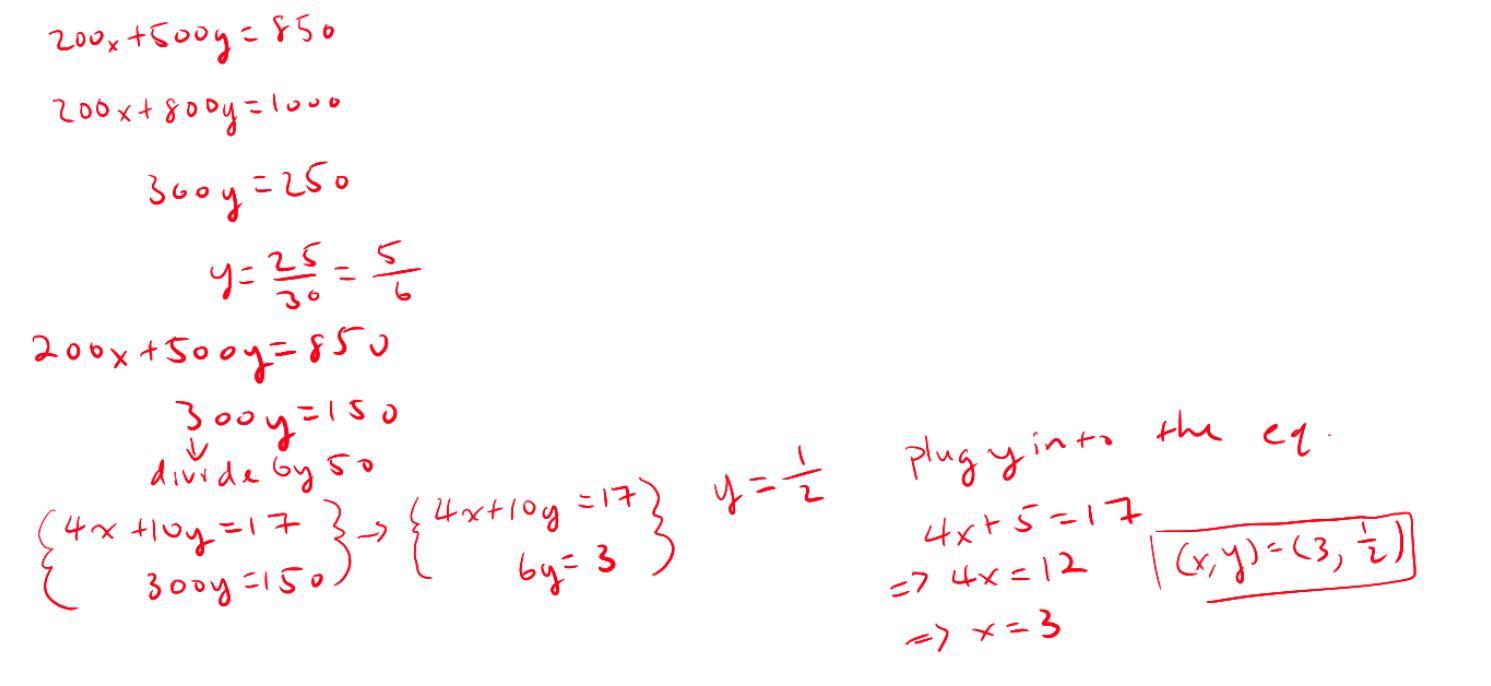 200x+500y=850
200x+800y=1000
300y=250
y=25/30=5/6
200x+500y=850
300y=150
↓
divide by 50
{4x+10y=17
300y=150} → {4x+10y=17
6y=3}
y=1/2
plug y into the eq.
4x+5=17
=> 4x=12
=> x=3
(x,y)=(3,1/2)